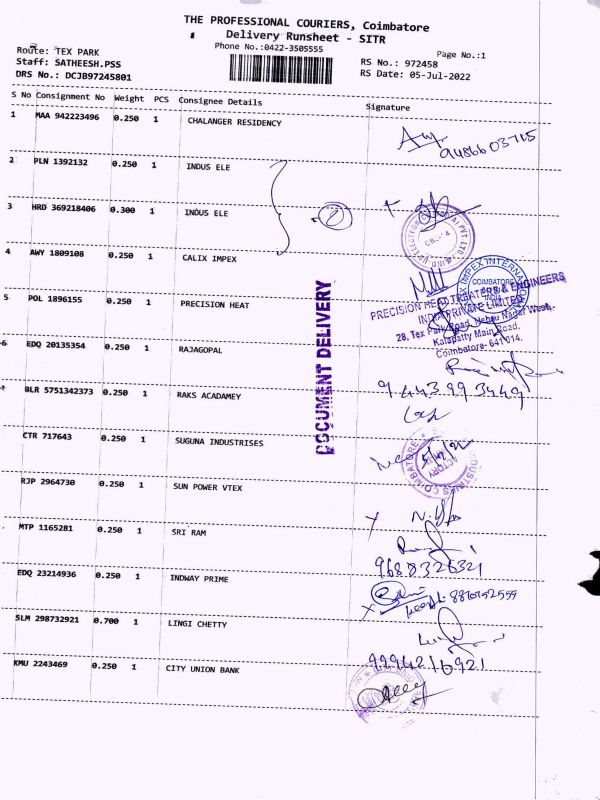 THE PROFESSIONAL COURIERS, Coimbatore
Delivery Runsheet - SITR
Phone No.:0422-3505555
Page No.:1
Route: TEX PARK
Staff: SATHEESH.PSS
DRS No.: DCJB97245801
RS No.: 972458
RS Date: 05-Jul-2022
S No Consignment No Weight PCS Consignee Details Signature
1 MAA 942223496 0.250 1 CHALANGER RESIDENCY
9486603715
2 PLN 1392132 0.250 1 INDUS ELE
3 HRD 369218406 0.300 1 INDUS ELE
2
4 AWY 1809108 0.250 1 CALIX IMPEX
COIMBATORE
INDIA
5 POL 1896155 0.250 1 PRECISION HEAT
PRECISION HEAT TREATERS & ENGINEERS
INDIA PRIVATE LIMITED
28, Tex Park Road, Nehru Nagar West,
Kalapatty Main Road,
Coimbatore- 641 014.
DOCUMENT DELIVERY
6 EDQ 20135354 0.250 1 RAJAGOPAL
9443993449
BLR 5751342373 0.250 1 RAKS ACADAMEY
CTR 717643 0.250 1 SUGUNA INDUSTRISES
RJP 2964730 0.250 1 SUN POWER VTEX
MTP 1165281 0.250 1 SRI RAM
9688326321
EDQ 23214936 0.250 1 INDWAY PRIME
8870752555
SLM 298732921 0.700 1 LINGI CHETTY
9994216921
KMU 2243469 0.250 1 CITY UNION BANK